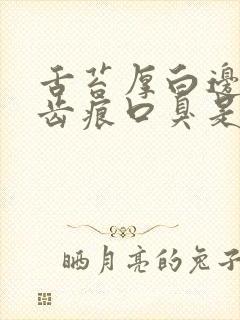 舌苔厚白邊
齿痕口臭是
晒月亮的兔子